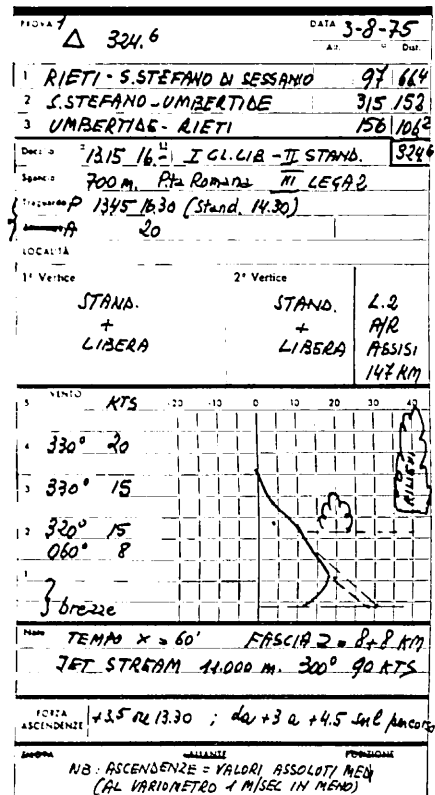 PROVA 1 DATA 3-8-75
△ 324.6
Dist.
1 RIETI - S.STEFANO DI SESSANIO 97 66,4
2 S.STEFANO - UMBERTIDE 315 152
3 UMBERTIDE - RIETI 156 106²
Decollo 1315 16.- I CL. LIB - II STAND. 324,6
Sgancio 700 m. P.ta Romana III LEGA 2
Traguardo P 1345 16.30 (Stand. 14.30)
A 20
LOCALITÀ
1º Vertice 2º Vertice
STAND. STAND. L.2
+ + A/R
LIBERA LIBERA ASSISI
147 KM
5 VENTO KTS -20 -10 0 10 20 30 40
4 330° 20
3 330° 15
2 320° 15
060° 8
1
brezze
RILIEVI
Note TEMPO X = 60' FASCIA 2 = 8+8 KM
JET STREAM 11.000 m. 300° 90 KTS
FORZA ASCENDENZE +3.5 ore 13.30 ; da +3 a +4.5 sul percorso
NB: ASCENDENZE = VALORI ASSOLUTI MEDI
(AL VARIOMETRO 1 M/SEC IN MENO)